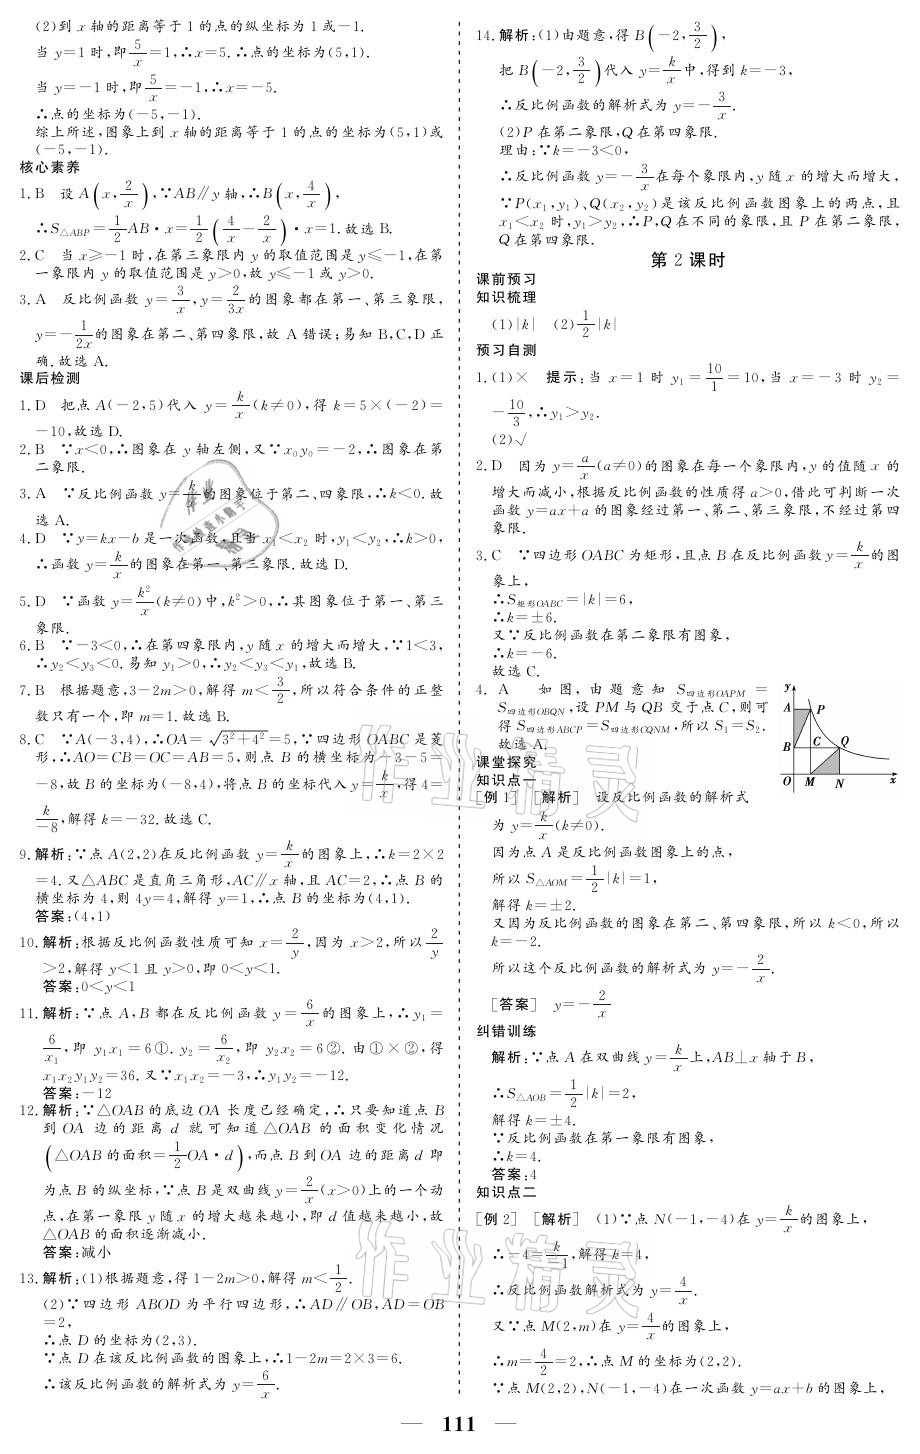 (2)到 x 轴的距离等于 1 的点的纵坐标为 1 或-1.
当 y=1 时,即5/x=1,∴x=5.∴点的坐标为(5,1).
当 y=-1 时,即5/x=-1,∴x=-5.
∴点的坐标为(-5,-1).
综上所述,图象上到 x 轴的距离等于 1 的点的坐标为(5,1)或
(-5,-1).
核心素养
1. B 设 A(x,2/x),∵AB∥y 轴,∴B(x,4/x),
∴S△ABP=1/2AB·x=1/2(4/x-2/x)·x=1.故选 B.
2. C 当 x≥-1 时,在第三象限内 y 的取值范围是 y≤-1,在第
一象限内 y 的取值范围是 y>0,故 y≤-1 或 y>0.
3. A 反比例函数 y=3/x,y=2/3x的图象都在第一、第三象限,
y=-1/2x的图象在第二、第四象限,故 A 错误;易知 B,C,D 正
确.故选 A.
课后检测
1. D 把点 A(-2,5)代入 y=k/x(k≠0),得 k=5×(-2)=
-10,故选 D.
2. B ∵x<0,∴图象在 y 轴左侧,又∵x₀y₀=-2,∴图象在第
二象限.
3. A ∵反比例函数 y=k/x的图象位于第二、四象限,∴k<0.故
选 A.
4. D ∵y=kx-b 是一次函数,且当 x₁<x₂ 时,y₁<y₂,∴k>0,
∴函数 y=k/x的图象在第一、第三象限.故选 D.
5. D ∵函数 y=k²/x(k≠0)中,k²>0,∴其图象位于第一、第三
象限.
6. B ∵-3<0,∴在第四象限内,y 随 x 的增大而增大,∵1<3,
∴y₂<y₃<0.易知 y₁>0,∴y₂<y₃<y₁,故选 B.
7. B 根据题意,3-2m>0,解得 m<3/2,所以符合条件的正整
数只有一个,即 m=1.故选 B.
8. C ∵A(-3,4),∴OA=√(3²+4²)=5,∵四边形 OABC 是菱
形,∴AO=CB=OC=AB=5,则点 B 的横坐标为-3-5=
-8,故 B 的坐标为(-8,4),将点 B 的坐标代入 y=k/x,得 4=
k/-8,解得 k=-32.故选 C.
9. 解析:∵点 A(2,2)在反比例函数 y=k/x的图象上,∴k=2×2
=4.又△ABC 是直角三角形,AC∥x 轴,且 AC=2,∴点 B 的
横坐标为 4,则 4y=4,解得 y=1,∴点 B 的坐标为(4,1).
答案:(4,1)
10. 解析:根据反比例函数性质可知 x=2/y,因为 x>2,所以2/y
>2,解得 y<1 且 y>0,即 0<y<1.
答案:0<y<1
11. 解析:∵点 A,B 都在反比例函数 y=6/x的图象上,∴y₁=
6/x₁,即 y₁x₁=6①.y₂=6/x₂,即 y₂x₂=6②.由①×②,得
x₁x₂y₁y₂=36.又∵x₁x₂=-3,∴y₁y₂=-12.
答案:-12
12. 解析:∵△OAB 的底边 OA 长度已经确定,∴只要知道点 B
到 OA 边的距离 d 就可知道△OAB 的面积变化情况
(△OAB 的面积=1/2OA·d),而点 B 到 OA 边的距离 d 即
为点 B 的纵坐标,∵点 B 是双曲线 y=2/x(x>0)上的一个动
点,在第一象限 y 随 x 的增大越来越小,即 d 值越来越小,故
△OAB 的面积逐渐减小.
答案:减小
13. 解析:(1)根据题意,得 1-2m>0,解得 m<1/2.
(2)∵四边形 ABOD 为平行四边形,∴AD∥OB,AD=OB
=2,
∴点 D 的坐标为(2,3).
∵点 D 在该反比例函数的图象上,∴1-2m=2×3=6.
∴该反比例函数的解析式为 y=6/x.
14. 解析:(1)由题意,得 B(-2,3/2),
把 B(-2,3/2)代入 y=k/x中,得到 k=-3,
∴反比例函数的解析式为 y=-3/x.
(2)P 在第二象限,Q 在第四象限.
理由:∵k=-3<0,
∴反比例函数 y=-3/x在每个象限内,y 随 x 的增大而增大,
∵P(x₁,y₁)、Q(x₂,y₂)是该反比例函数图象上的两点,且
x₁<x₂ 时,y₁>y₂,∴P,Q 在不同的象限,且 P 在第二象限,
Q 在第四象限.
第 2 课时
课前预习
知识梳理
(1)|k| (2)1/2|k|
预习自测
1. (1)× 提示:当 x=1 时 y₁=10/1=10,当 x=-3 时 y₂=
-10/3,∴y₁>y₂.
(2)√
2. D 因为 y=a/x(a≠0)的图象在每一个象限内,y 的值随 x 的
增大而减小,根据反比例函数的性质得 a>0,借此可判断一次
函数 y=ax+a 的图象经过第一、第二、第三象限,不经过第四
象限.
3. C ∵四边形 OABC 为矩形,且点 B 在反比例函数 y=k/x的图
象上,
∴S矩形OABC=|k|=6,
∴k=±6.
又∵反比例函数在第二象限有图象,
∴k=-6.
故选 C.
4. A 如图,由题意知 S四边形OAPM=
S四边形OBQN,设 PM 与 QB 交于点 C,则可
得 S四边形ABCP=S四边形CQNM,所以 S₁=S₂.
故选 A.
y
A P
B C Q
O M N x
课堂探究
知识点一
[例 1] [解析] 设反比例函数的解析式
为 y=k/x(k≠0).
因为点 A 是反比例函数图象上的点,
所以 S△AOM=1/2|k|=1,
解得 k=±2.
又因为反比例函数的图象在第二、第四象限,所以 k<0,所以
k=-2.
所以这个反比例函数的解析式为 y=-2/x.
[答案] y=-2/x
纠错训练
解析:∵点 A 在双曲线 y=k/x上,AB⊥x 轴于 B,
∴S△AOB=1/2|k|=2,
解得 k=±4.
∵反比例函数在第一象限有图象,
∴k=4.
答案:4
知识点二
[例 2] [解析] (1)∵点 N(-1,-4)在 y=k/x的图象上,
∴-4=k/-1,解得 k=4,
∴反比例函数解析式为 y=4/x.
又∵点 M(2,m)在 y=4/x的图象上,
∴m=4/2=2,∴点 M 的坐标为(2,2).
∵点 M(2,2),N(-1,-4)在一次函数 y=ax+b 的图象上,
— 111 —
作业精灵
作业精灵